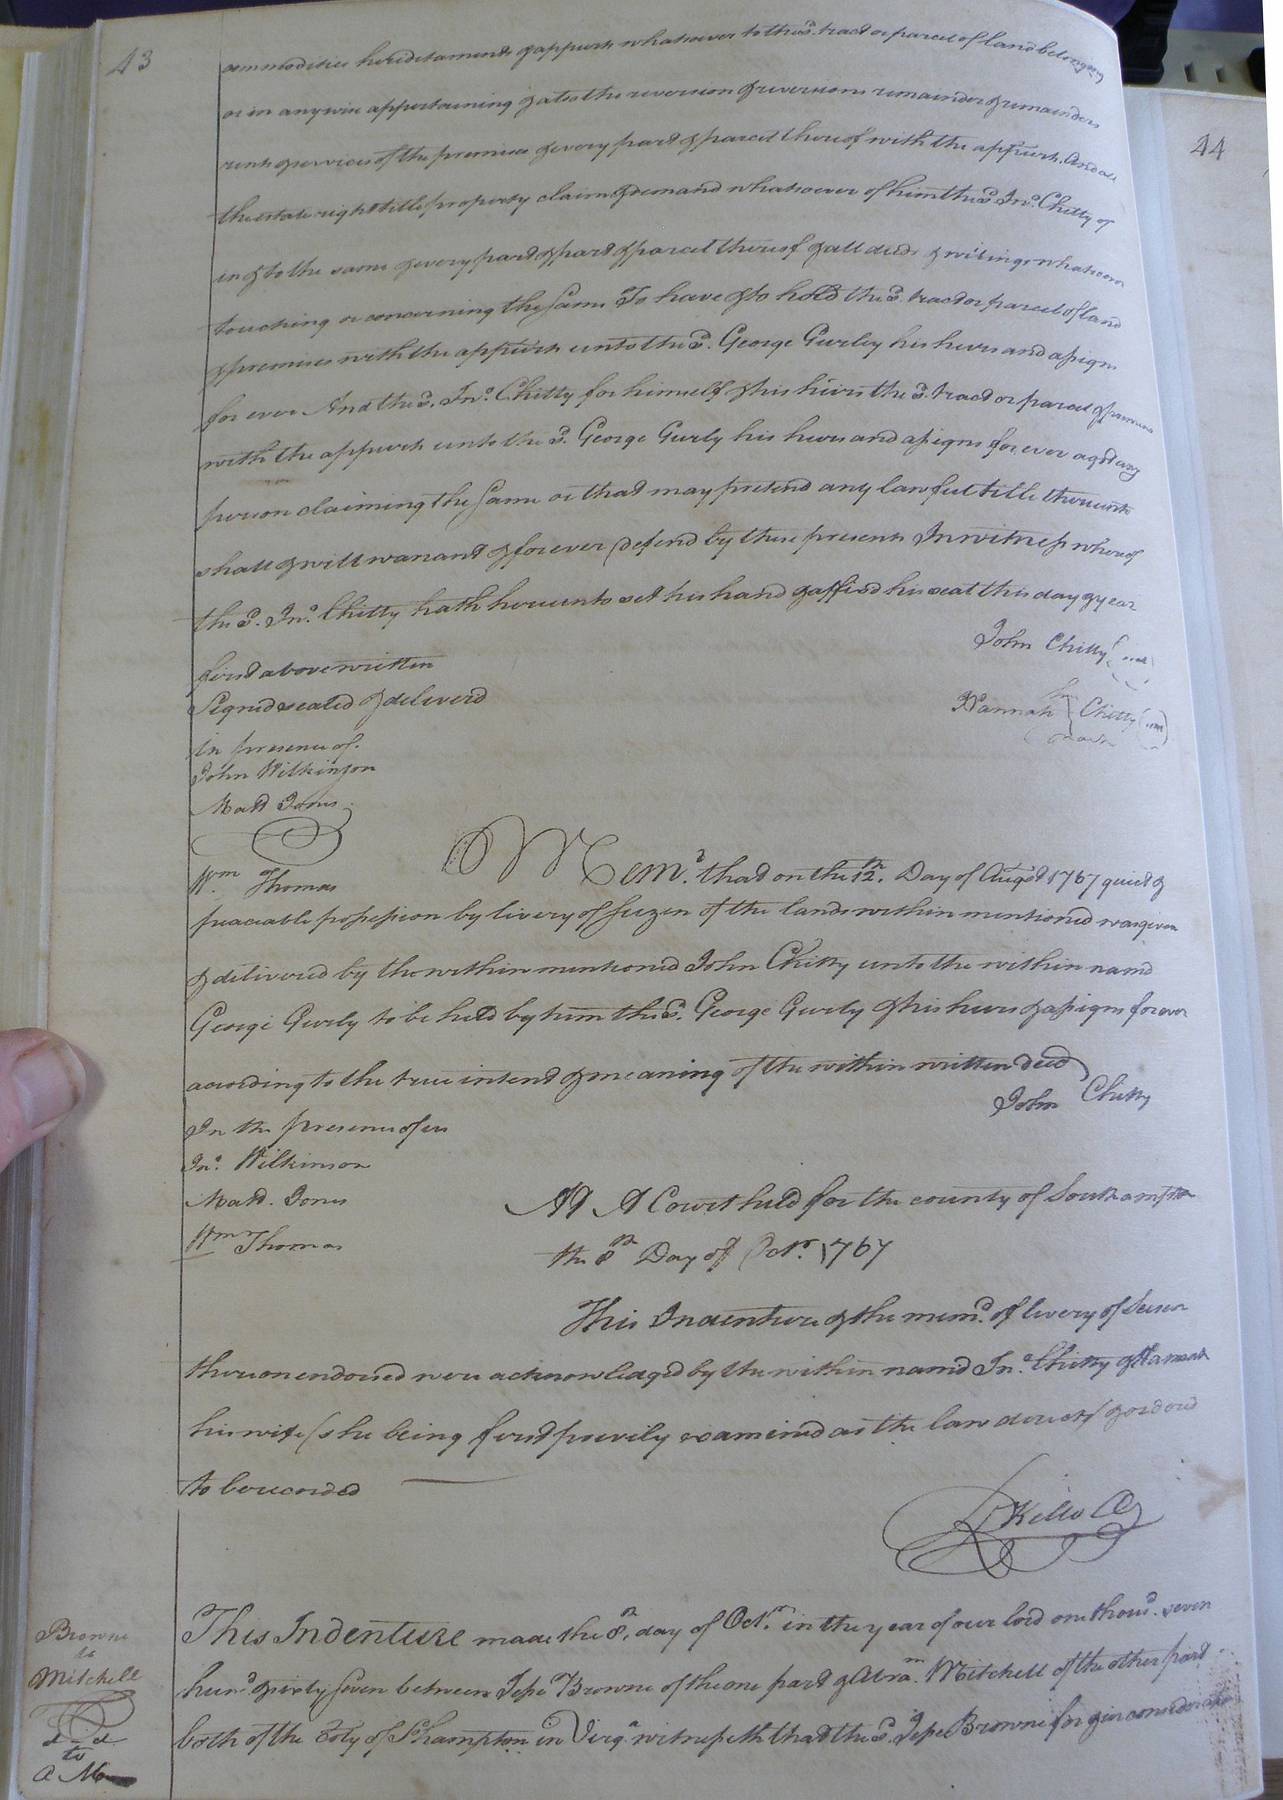 43
commodities hereditaments & appurts whatsoever to the sd. tract or parcel of land belonging
or in anywise appertaining & also the reversion & reversions remainder & remainders
rents & services of the premises & every part & parcel thereof with the appurts. And all
the estate right title property claim & demand whatsoever of him the sd. Jno. Chitty of
in & to the same & every part & part & parcel thereof & all deeds & writings whatsoever
touching or concerning the same To have & to hold the sd. tract or parcel of land
& premises with the appurts unto the sd. George Gurley his heirs and assigns
for ever And the sd. Jno. Chitty for himself & his heirs the sd. tract or parcel & premises
with the appurts unto the sd. George Gurly his heirs and assigns for ever agst any
person claiming the same or that may pretend any lawful title thereunto
shall & will warrant & forever defend by these presents In witness whereof
the sd. Jno. Chitty hath hereunto set his hand & affixd his seat this day & year
first above written
John Chitty (seal)
Signed sealed & deliverd
Hannah her mark Chitty (seal)
in presence of.
John Wilkinson
Mattd. Jones
Wm Thomas
Memd. that on the 12th. Day of Augst 1767 quiet &
peaceable possession by livery of Seizen of the lands within mentioned was given
& delivered by the within mentioned John Chitty unto the within namd
George Gurly to be held by him the sd. George Gurly & his heirs & assigns forever
according to the true intent & meaning of the within written deed
John Chitty
In the presence of us
Jno. Wilkinson
Mattd. Jones
Wm Thomas
At A Court held for the county of Southampton
the 8th Day of Octr. 1767
This Indenture & the memd. of livery of Seisen
thereon endorsed were acknowledged by the within namd Jno. Chitty & Hannah
his wife (she being first privily examined as the law directs) & ordered
to be recorded
Kello Cl
Browne
to
Mitchell
Dd
to
A M
This Indenture made the 8th. day of Octr. in the year of our lord one thousd. seven
hund. & sixty seven between Jesse Browne of the one part & Abram. Mitchell of the other part
both of the Coty of S.hampton in Virga. witnesseth that the sd. Jesse Browne for & in consideration
44